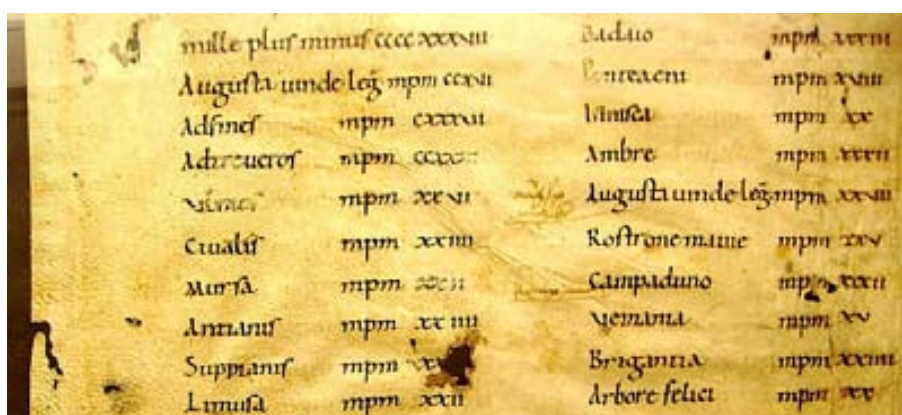 mille plus minus cccc xxxviii
Augusta uinde leg mpm ccxvi
Adfines mpm cxxxvi
Adtreueros mpm
mpm xxvi
Ciualis mpm xxiiii
Mursa mpm xxii
Antianis mpm xxiiii
Suppianis mpm
Limusa mpm xxii
Badaio mpm xxxiii
mpm xviii
mpm xx
Ambre mpm xxxii
Augusta uinde leg mpm xxviii
Rostrone maiie mpm xxv
Campaduno mpm xxxii
Uemania mpm xv
Brigantia mpm xxiiii
Arbore felici mpm xx